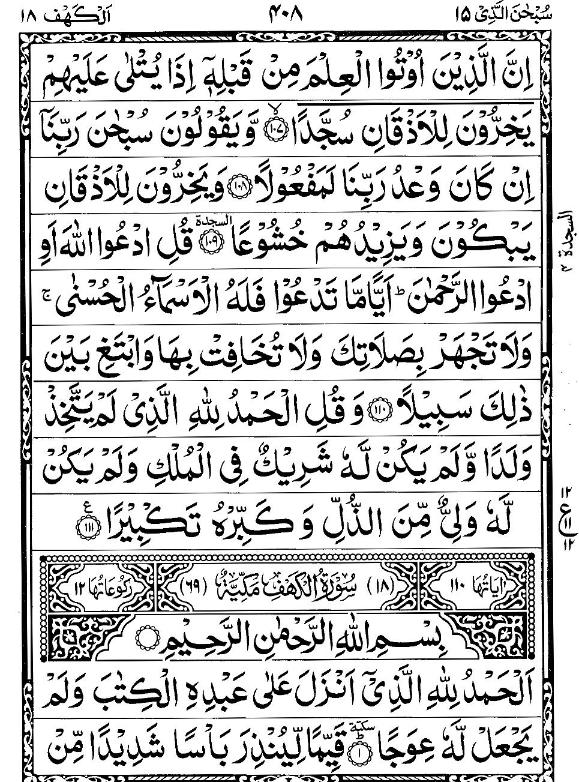 سُبْحٰنَ الَّذِیْۤ ۱۵ ۴۰۸ اَلْكَهْف ۱۸
اِنَّ الَّذِیْنَ اُوْتُوا الْعِلْمَ مِنْ قَبْلِهٖۤ اِذَا یُتْلٰى عَلَیْهِمْ
یَخِرُّوْنَ لِلْاَذْقَانِ سُجَّدًا ﴿۱۰۷﴾ وَّیَقُوْلُوْنَ سُبْحٰنَ رَبِّنَاۤ
اِنْ كَانَ وَعْدُ رَبِّنَا لَمَفْعُوْلًا ﴿۱۰۸﴾ وَیَخِرُّوْنَ لِلْاَذْقَانِ
یَبْكُوْنَ وَیَزِیْدُهُمْ خُشُوْعًا ﴿۱۰۹﴾ السجدة قُلِ ادْعُوا اللّٰهَ اَوِ
السجدة ۴
ادْعُوا الرَّحْمٰنَ ؕ اَیًّا مَّا تَدْعُوْا فَلَهُ الْاَسْمَآءُ الْحُسْنٰى ۚ
وَلَا تَجْهَرْ بِصَلَاتِكَ وَلَا تُخَافِتْ بِهَا وَابْتَغِ بَیْنَ
ذٰلِكَ سَبِیْلًا ﴿۱۱۰﴾ وَقُلِ الْحَمْدُ لِلّٰهِ الَّذِیْ لَمْ یَتَّخِذْ
وَلَدًا وَّلَمْ یَكُنْ لَّهٗ شَرِیْكٌ فِی الْمُلْكِ وَلَمْ یَكُنْ
لَّهٗ وَلِیٌّ مِّنَ الذُّلِّ وَكَبِّرْهُ تَكْبِیْرًا ﴿۱۱۱﴾ ع
۱۲
ع ۱۱
۱۲
اٰیَاتُهَا ۱۱۰ (۱۸) سُوْرَةُ الْكَهْفِ مَكِّیَّةٌ (۶۹) رُكُوْعَاتُهَا ۱۲
بِسْمِ اللّٰهِ الرَّحْمٰنِ الرَّحِیْمِ
اَلْحَمْدُ لِلّٰهِ الَّذِیْۤ اَنْزَلَ عَلٰى عَبْدِهِ الْكِتٰبَ وَلَمْ
یَجْعَلْ لَّهٗ عِوَجًا ﴿۱﴾ سكتة قَیِّمًا لِّیُنْذِرَ بَاْسًا شَدِیْدًا مِّنْ